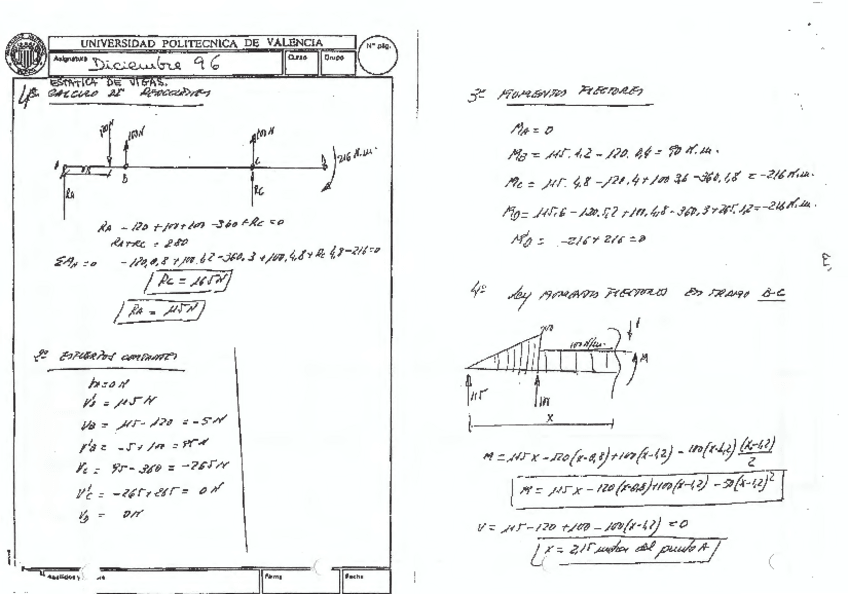 UNIVERSIDAD POLITECNICA DE VALENCIA
Nº pág.
Asignatura Diciembre 96
Curso
Grupo
ESTATICA DE VIGAS.
CALCULO DE REACCIONES
100N
B
C
216 N.m.
RA
RC
RA - 120 + 100 + 100 - 360 + RC = 0
RA + RC = 280
ΣMA = 0 -120.0,8 + 100.1,2 - 360.3 + 100.4,8 + RC 4,8 - 216 = 0
RC = 165 N
RA = 115 N
2º ESFUERZOS CORTANTES
VA = 0 N
V'A = 115 N
VB = 115 - 120 = -5 N
V'B = -5 + 100 = 95 N
VC = 95 - 360 = -265 N
V'C = -265 + 265 = 0 N
VD = 0 N
Fecha
3º MOMENTOS FLECTORES
MA = 0
MB = 115.1,2 - 120.0,4 = 90 N.m.
MC = 115.4,8 - 120.4 + 100.3,6 - 360.1,8 = -216 N.m.
MD = 115.6 - 120.5,2 + 100.4,8 - 360.3 + 265.1,2 = -216 N.m.
M'D = -216 + 216 = 0
4º Ley MOMENTOS FLECTORES EN TRAMO B-C
100 N/m.
M
115
100
X
M = 115 X - 120(X-0,8) + 100(X-1,2) - 100(X-1,2) (X-1,2)/2
M = 115 X - 120(X-0,8) + 100(X-1,2) - 50(X-1,2)²
V = 115 - 120 + 100 - 100(X-1,2) = 0
X = 2,15 metros del punto A